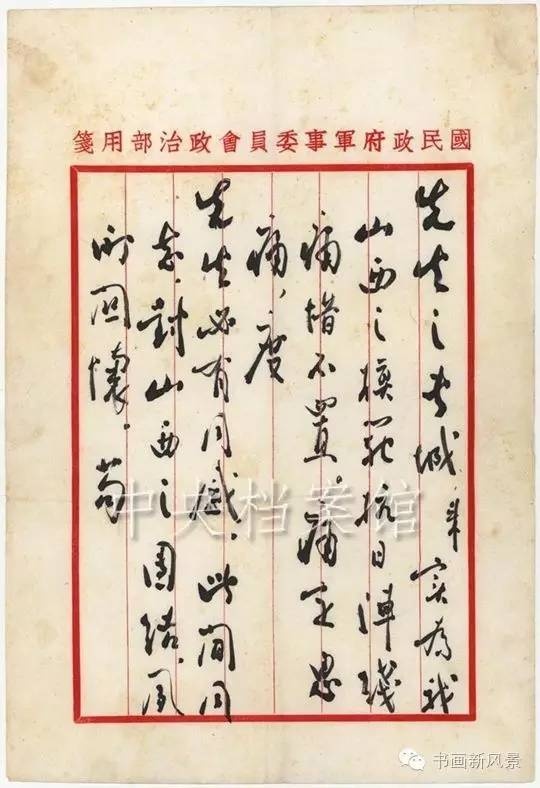 國民政府軍事委員會政治部用箋
先生之長城,實為我
山西之模範抗日陣綫
痛惜不置。痛定思
痛,度
先生必有同感。此間同
志,對山西之團結,夙
所關懷。苟
中央档案馆
书画新风景